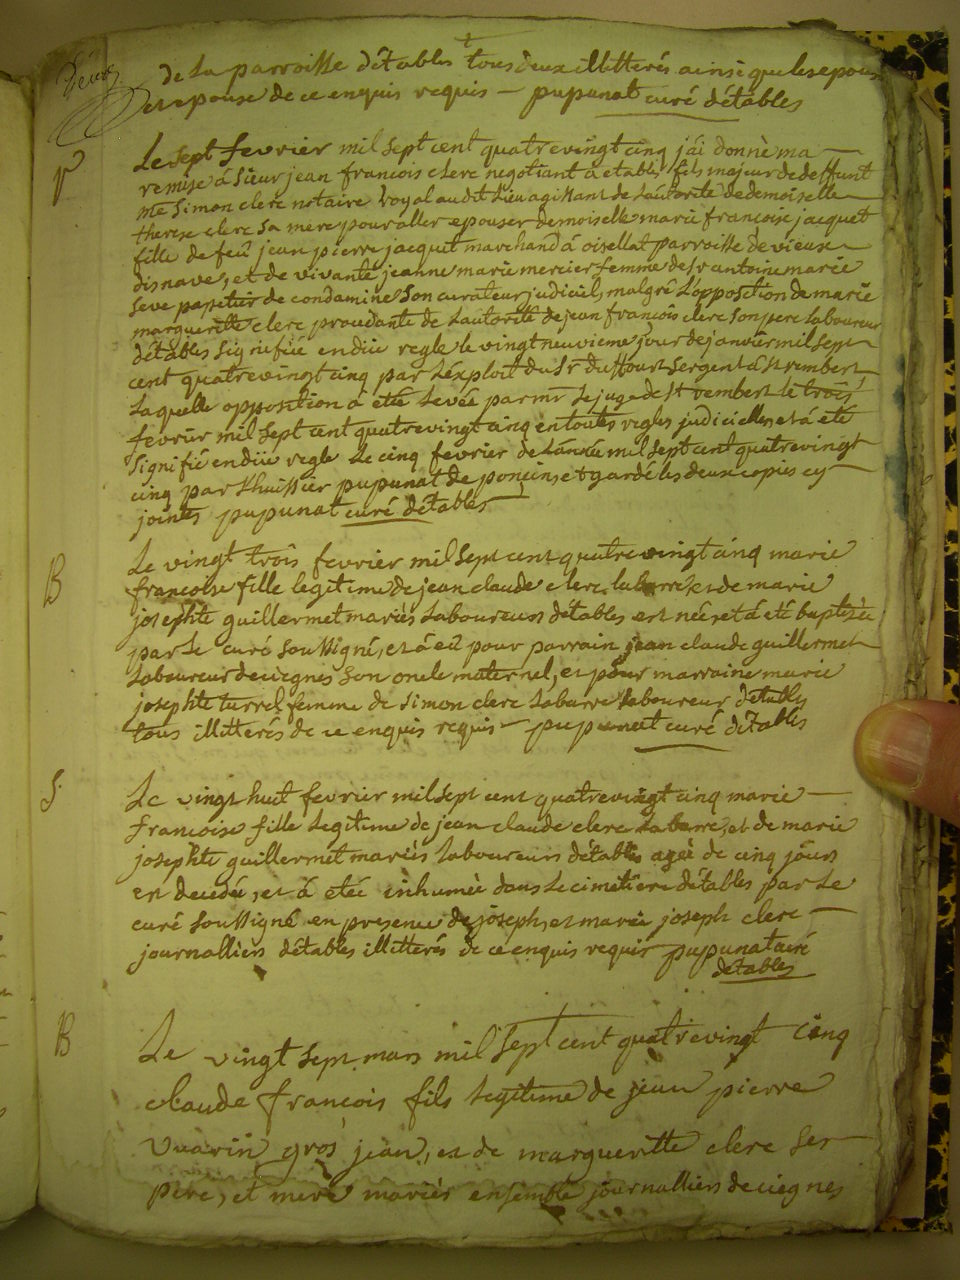 de la parroisse détables tous deux illitterés ainsi que lesepoux
et epouse de ce enquis requis — pupunat curé détables
Le sept fevrier mil sept cent quatrevingt cinq jái donné ma
remise á Sieur jean francois clerc negotiant á etables fils majeur de deffunt
me Simon clerc notaire Royal audit lieu agissant de Láutorité de demoiselle
therese clerc sa mere pour aller epouser demoiselle marie francoise jacquet
fille de feû jean pierre jacquet marchand á oisellat parroisse de vieux
disnave, et de vivante jeanne marie mercier femme de Sr antoine marie
Seve papetier de condamine Son curateur judiciel, malgré Lópposition de marie
margueritte clerc procedante de Lautorité de jean francois clerc son pere Laboureur
détables Signifiée en düe regle le vingt neuvieme jour de janvier mil sept
cent quatrevingt cinq par Léxploit du Sr Sergent á St rembert
Laquelle opposition á eté Levée par mr Le juge de St rembert le trois
fevrier mil Sept cent quatrevingt cinq en toutes regles judicielles, et á eté
Signifié en düe regle Le cinq fevrier de Lánnée mil Sept cent quatrevingt
cinq par Lhuissier pupunat de poncin et gardé les deux copies cy
jointes pupunat curé détables
B
Le vingt trois fevrier mil Sept cent quatrevingt cinq marie
francoise fille legitime de jean claude clerc labarre et de marie
josephte guillermet mariés Laboureurs détables est née et á eté baptisée
par Le curé Soussigné, et á eû pour parrain jean claude guillermet
Laboureur de ciegnes Son oncle maternel, et pour marraine marie
josephte turrel femme de Simon clerc Labarre Laboureur détables
tous illitterés de ce enquis requis — pupunat curé détables
S.
Le vingt huit fevrier mil Sept cent quatrevingt cinq marie
francoise fille Legitime de jean claude clerc Labarre, et de marie
josephte guillermet mariés Laboureurs détables ageé de cinq jours
est decedée, et á eteé inhumeé dans Le cimetiere détables par Le
curé Soussigné en presence de joseph, et marie joseph clerc
journalliers détables illitterés de ce enquis requis pupunat curé
détables
B
Le vingt sept mars mil Sept cent quatrevingt cinq
claude francois fils Legitime de jean pierre
Vuarin gros jean, et de margueritte clerc Ses
pere, et mere mariés ensemble journalliers de ciegnes